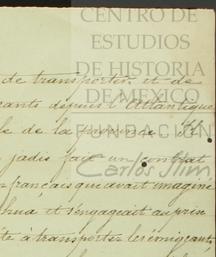 CENTRO DE
ESTUDIOS
DE HISTORIA
DE MÉXICO
FUNDACIÓN
Carlos Slim
de transporter et de
cants depuis l'Atlantique
le de la province
jadis fait un contrat
français qui avait imaginé
hua et s'engageait au prix
te à transporter les émigcants,